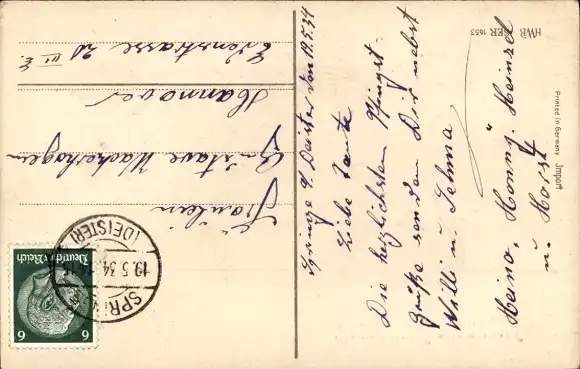 Springe a/Deister den 19.5.34
Liebe Tante
Die herzlichsten Pfingst-
grüße senden Dir nebst
Willi u. Selma
Heino, Honny, Heinzel
u. Horst
Fräulein
Gustave Wackerhagen
Hannover
Edenstrasse 20 III E.
SPRINGE
19.5.34
(DEISTER)
Deutsches Reich
6 6
HWB SER 1653
Printed in Germany Import